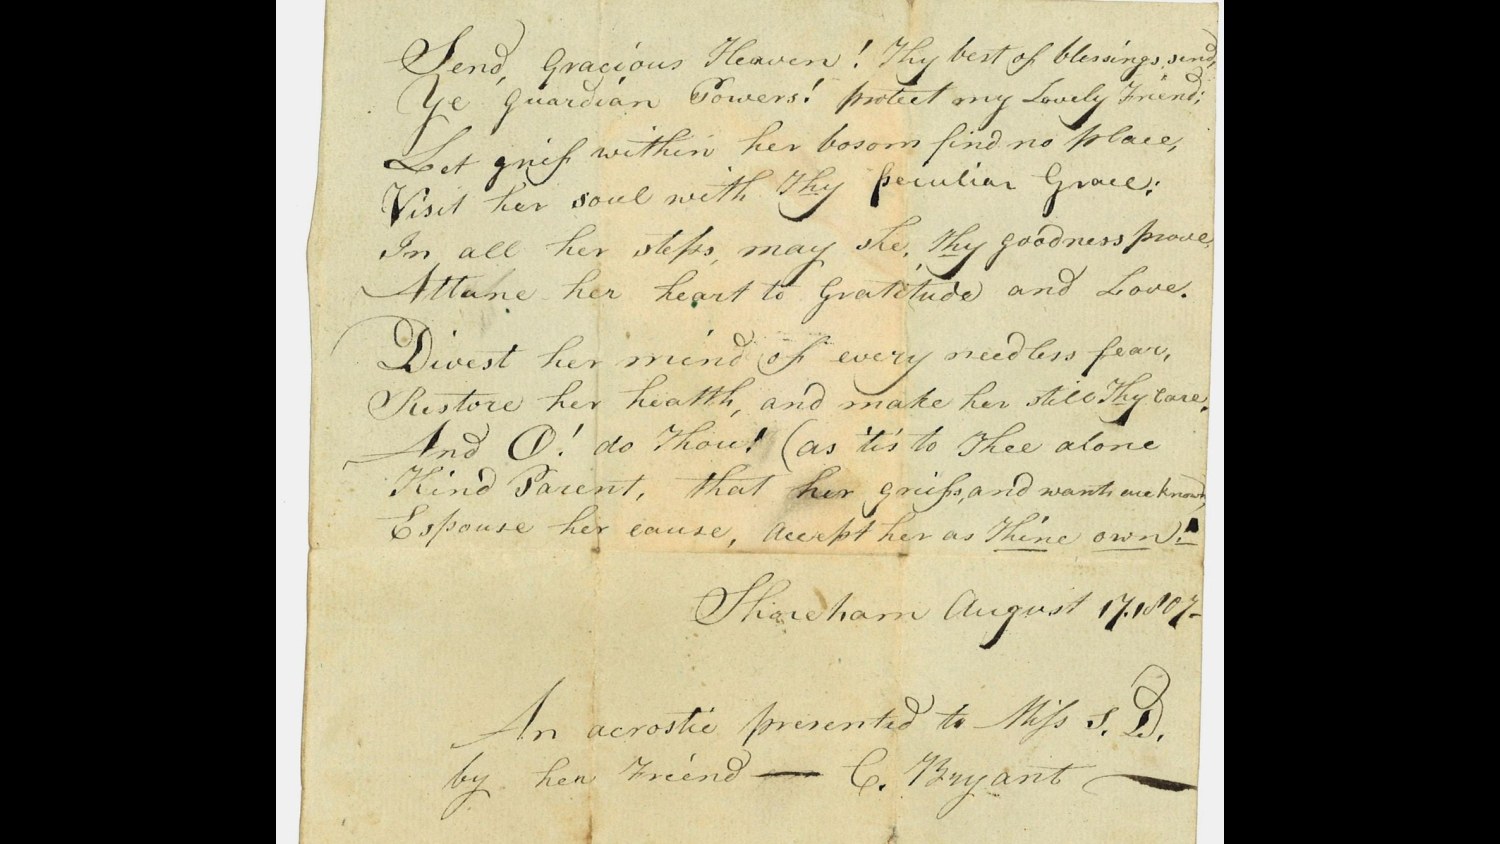 Send, Gracious Heaven! Thy best of blessings send,
Ye Guardian Powers! protect my Lovely Friend;
Let grief within her bosom find no place,
Visit her soul with Thy peculiar Grace;
In all her steps, may she, Thy goodness prove,
Attune her heart to Gratitude and Love.
Divest her mind of every needless fear,
Restore her health, and make her still Thy Care.
And O! do Thou! (as 'tis to Thee alone
Kind Parent, that her griefs, and wants are known,
Espouse her cause, accept her as Thine own)!
Shoreham August 17. 1807-
An acrostic presented to Miss S. D.
by her Friend — C. Bryant —